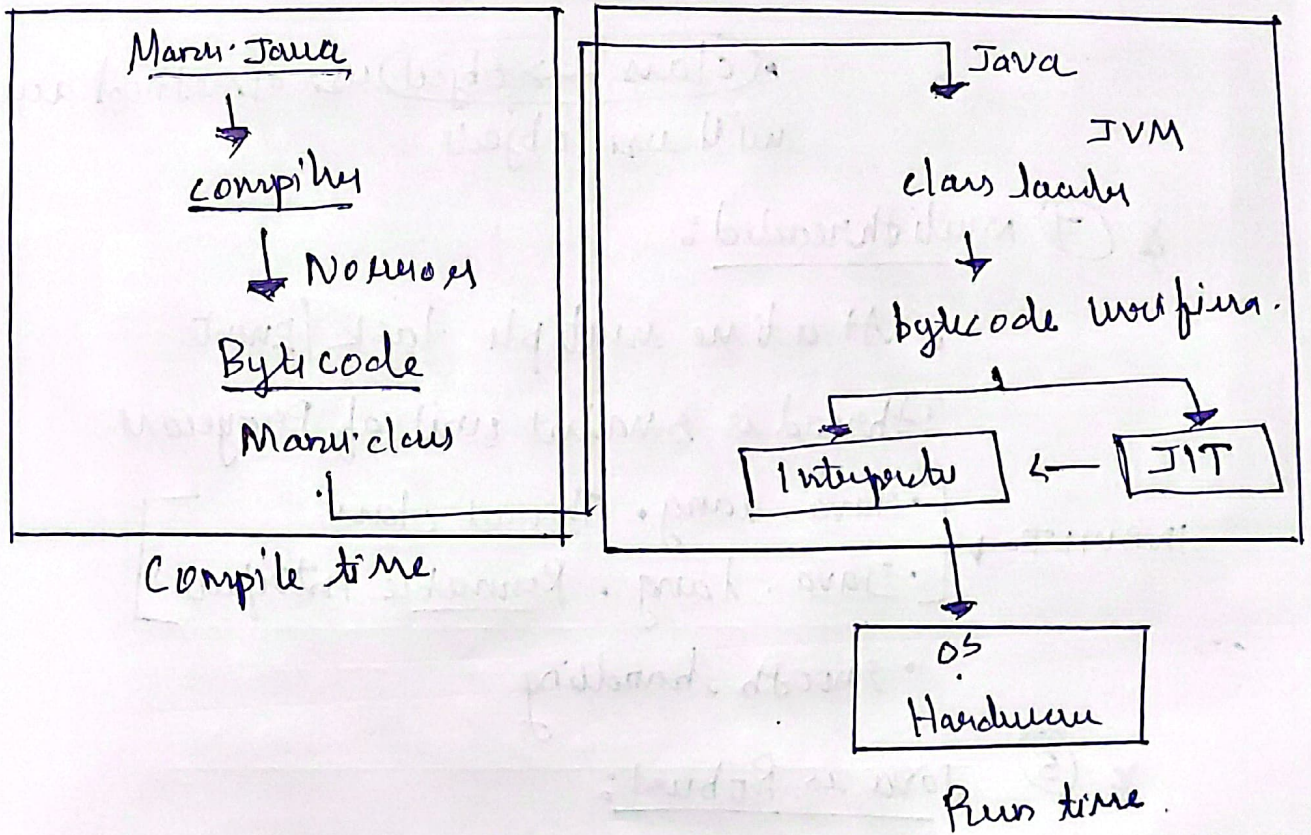 Manu.Java
compiler
No error
Bytecode
Manu.class
Compile time
Java
JVM
class loader
bytecode verifier.
Interpreter
JIT
OS
Hardware
Run time.